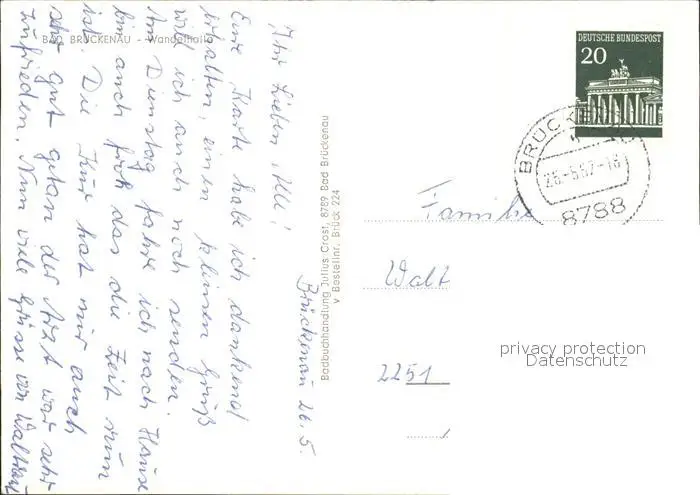 BAD BRÜCKENAU - Wandelhalle
Brückenau 26. 5.
Ihr Lieben, !
Eine Karte habe ich dankend
erhalten, einen kleinen Gruß
will ich auch noch senden.
Am Dienstag fahre ich nach Hause
bin auch froh das die Zeit rum
ist. Die Kur hat mir auch
sehr gut getan der Arzt war sehr
zufrieden. Nun viele Grüsse von Waltraut
Badbuchhandlung Julius Crast, 8789 Bad Brückenau
v Bestellnr. Brück 224
DEUTSCHE BUNDESPOST
20
8788
Familie
Walt
2251
privacy protection
Datenschutz